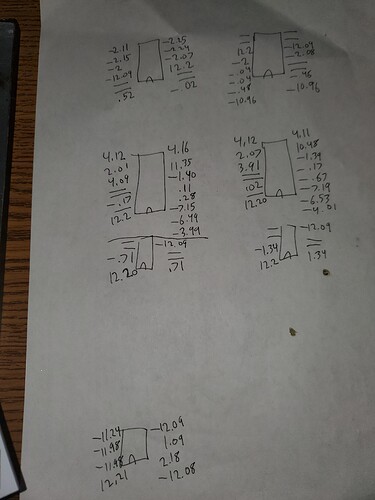 -2.11 -2.25
-2.15 -2.24
-2 -2.07
-12.09 12.2
.52 -.02
12.2 -12.09
-2 -2.08
-.04
-.04
-.48 -.46
-10.96 -10.96
4.12 4.16
2.01 11.35
4.09 -1.40
-.17 .11
12.2 .28
-7.15
-6.49
-3.99
4.12 4.11
2.07 10.48
3.91 -1.39
.102 -.17
12.20 -.67
-7.19
-6.53
-4.01
-12.09
-.71 .71
12.20
-12.09
-1.34 1.34
12.2
-11.24 -12.09
-11.98 1.09
-11.98 2.18
12.21 -12.08